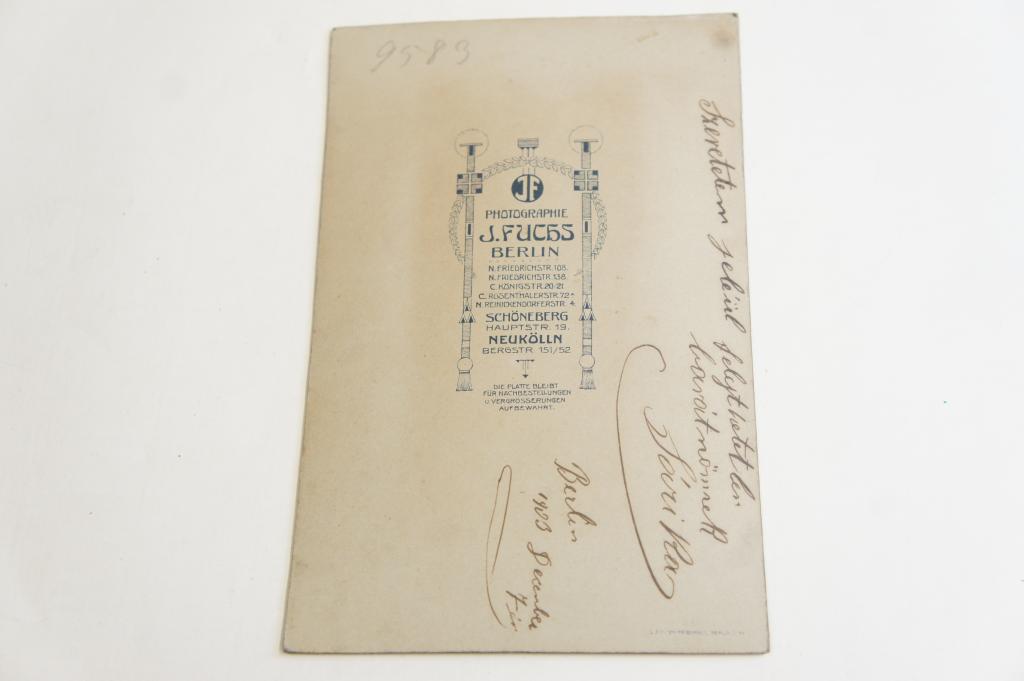 9583
JF
PHOTOGRAPHIE
J. FUCHS
BERLIN
N. FRIEDRICHSTR. 108.
N. FRIEDRICHSTR. 138.
C. KÖNIGSTR. 20-21
C. ROSENTHALERSTR. 72a
N. REINICKENDORFERSTR. 4.
SCHÖNEBERG
HAUPTSTR. 19.
NEUKÖLLN
BERGSTR. 151/52
DIE PLATTE BLEIBT
FÜR NACHBESTELLUNGEN
U. VERGRÖSSERUNGEN
AUFBEWAHRT.
Szeretetem jeléül
barátnőmnek
Sárika
Berlin
December